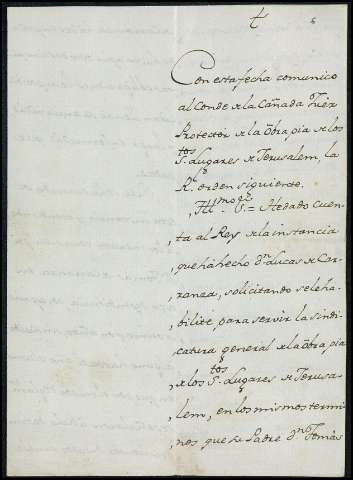 t 6
Con esta fecha comunico
al Conde de la Cañada Juez
Protector de la obra pia de los
S.tos Lugares de Jerusalem, la
R.l orden siguiente.
„Ill.mo S.or = He dado cuen-
„ta al Rey de la instancia
„que ha hecho d.n Lucas de Car-
„ranza, solicitando se le ha-
„bilite para servir la sindi-
„catura general de la obra pia
„de los S.tos Lugares de Jerusa-
„lem, en los mismos termi-
„nos que su Padre d.n Tomás